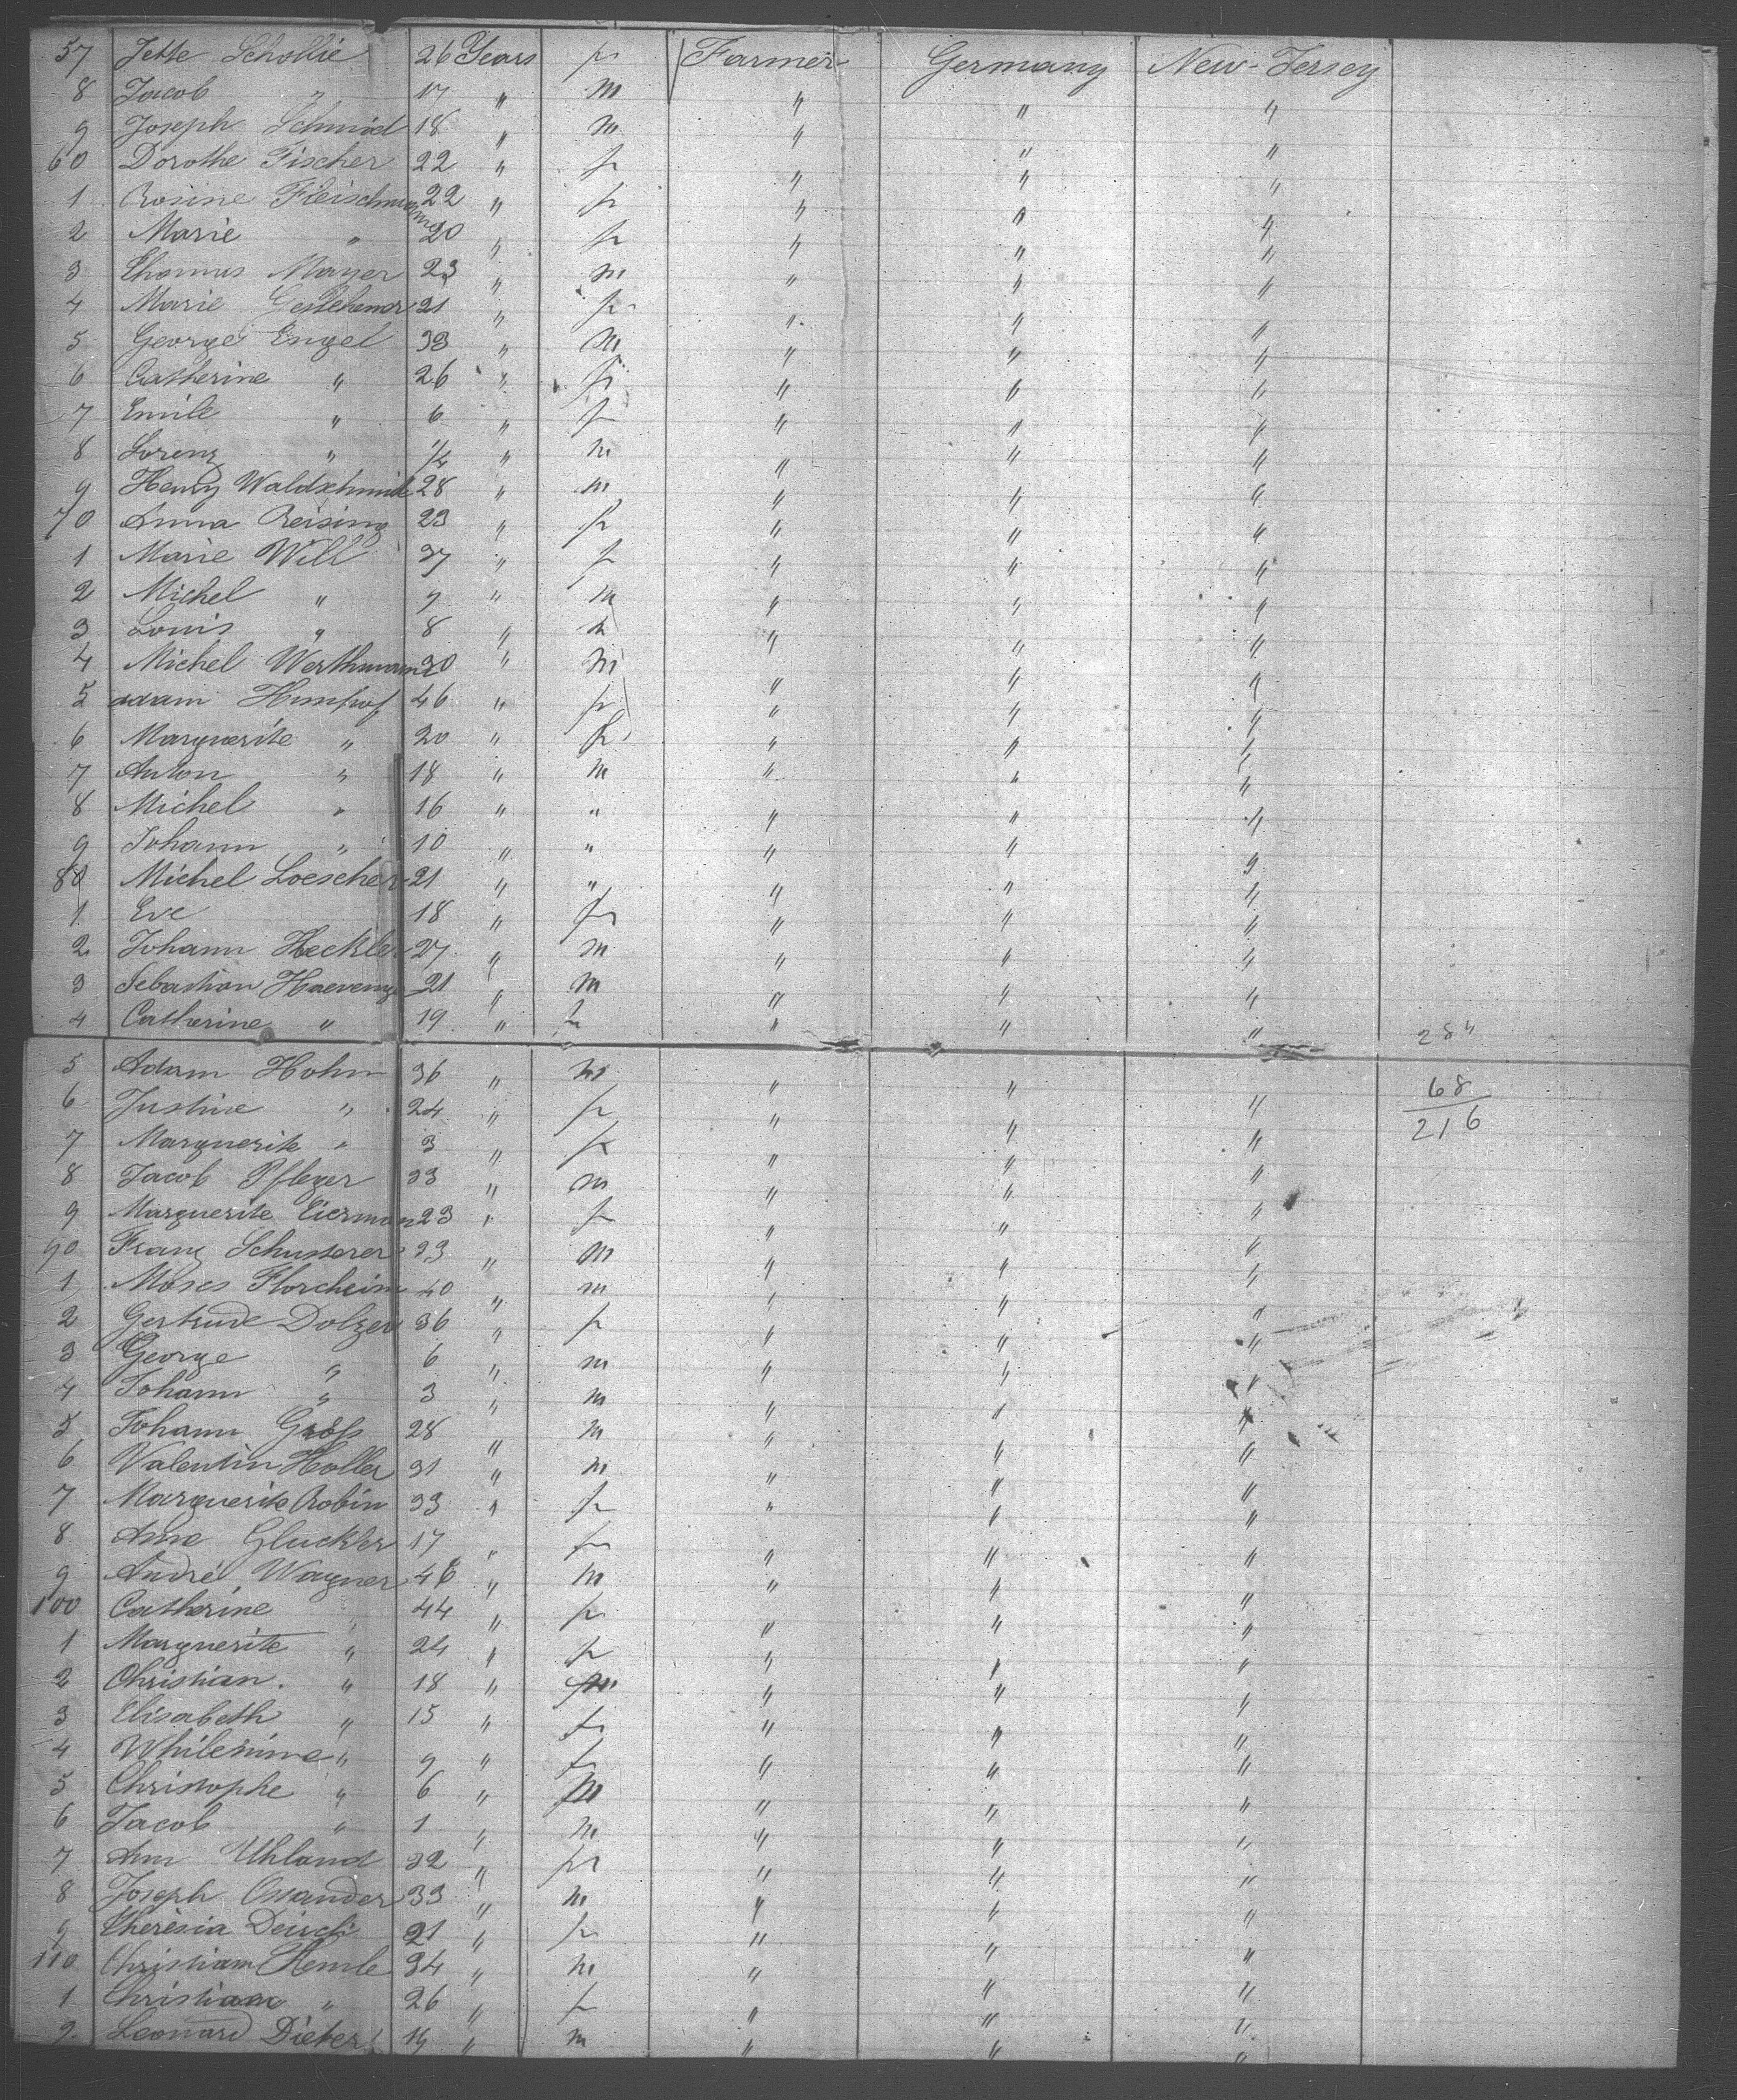 57 Jette Schollie 26 Years f Farmer Germany New-Jersey
8 Jacob " 17 " m " " "
9 Joseph Schmid 18 " m " " "
60 Dorothe Fischer 22 " f " " "
1 Rosine Fleischmann 22 " f " " "
2 Marie " 20 " f " " "
3 Thomas Mayer 23 " m " " "
4 Marie 21 " f " " "
5 George Engel 38 " m " " "
6 Catherine " 26 " f " " "
7 Emile " 6 " f " " "
8 Lorenz " 1/4 " m " " "
9 Henry Waldschmidt 28 " m " " "
70 Anna Reising 23 " f " " "
1 Marie Will 37 " f " " "
2 Michel " 9 " m " " "
3 Louis " 8 " m " " "
4 Michel Werthmann 30 " m " " "
5 adam 46 " f " " "
6 Marguerite " 20 " f " " "
7 Anton " 18 " m " " "
8 Michel " 16 " " " " "
9 Johann " 10 " " " " "
80 Michel Loescher 21 " " " " "
1 Eve 18 " f " " "
2 Johann Heckler 27 " m " " "
3 Sebastian 21 " m " " "
4 Catherine " 19 " f " " " 284
5 Adam Hohn 36 " m " " "
6 Justine " 24 " f " " " 68
7 Marguerite " 3 " f " " " 216
8 Jacob Pfleger 33 " m " " "
9 Marguerite Eierman 23 " f " " "
90 Franz Schusterer 33 " m " " "
1 Moses Florcheim 40 " m " " "
2 Gertrude Dolzer 36 " f " " "
3 George " 6 " m " " "
4 Johann " 3 " m " " "
5 Johann Groß 28 " m " " "
6 Valentin Holler 31 " m " " "
7 Marguerite Robin 33 " f " " "
8 Anne Gluckler 17 " f " " "
9 André Wagner 46 " m " " "
100 Catherine " 44 " f " " "
1 Marguerite " 24 " f " " "
2 Christian. " 18 " m " " "
3 Elisabeth " 15 " f " " "
4 Whilemine " 9 " f " " "
5 Christophe " 6 " m " " "
6 Jacob " 1 " m " " "
7 Ann Uhland 32 " f " " "
8 Joseph Ossander 33 " m " " "
9 Therèsia 21 " f " " "
110 Christiam Hemle 34 " m " " "
1 Christiam " 26 " f " " "
2 Leonard Dieter 19 " m " " "